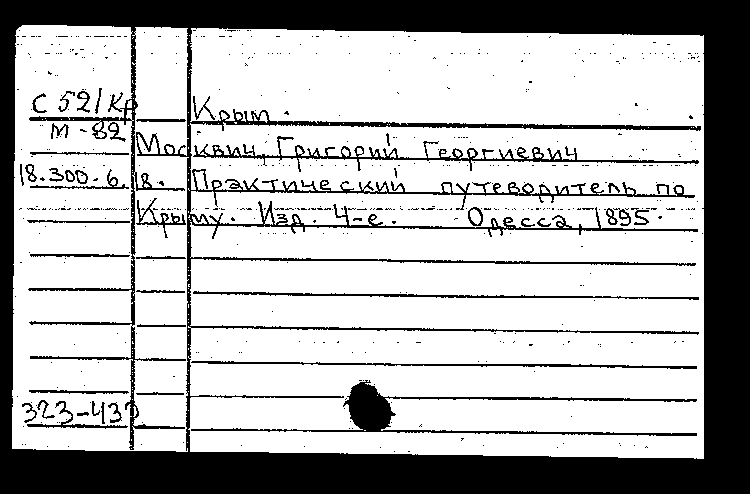 С 52/Кр Крым.
М-82
Москвич, Григорий Георгиевич
18.300.6.18. Практический путеводитель по
Крыму. Изд. 4-е. Одесса, 1895.